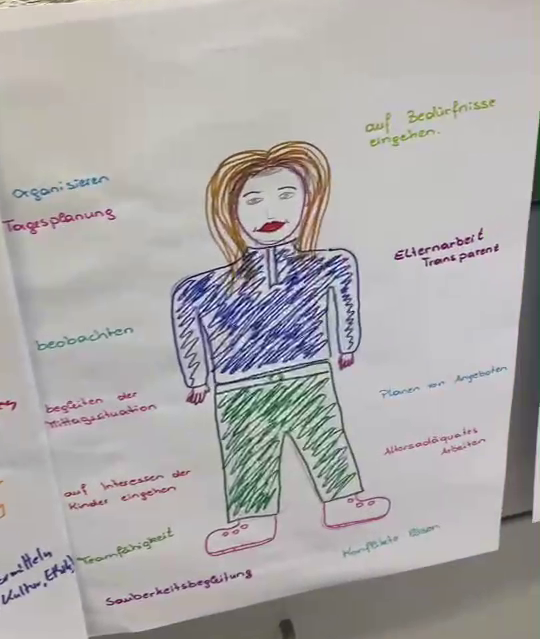 auf Bedürfnisse
eingehen.
Organisieren
Tagesplanung
Elternarbeit
Transparent
beobachten
Planen von Angeboten
begleiten der
Mittagssituation
Altersadäquates
Arbeiten
auf Interessen der
Kinder eingehen
Teamfähigkeit
Konflikte lösen
Kultur, Ethik)
Sauberkeitsbegleitung